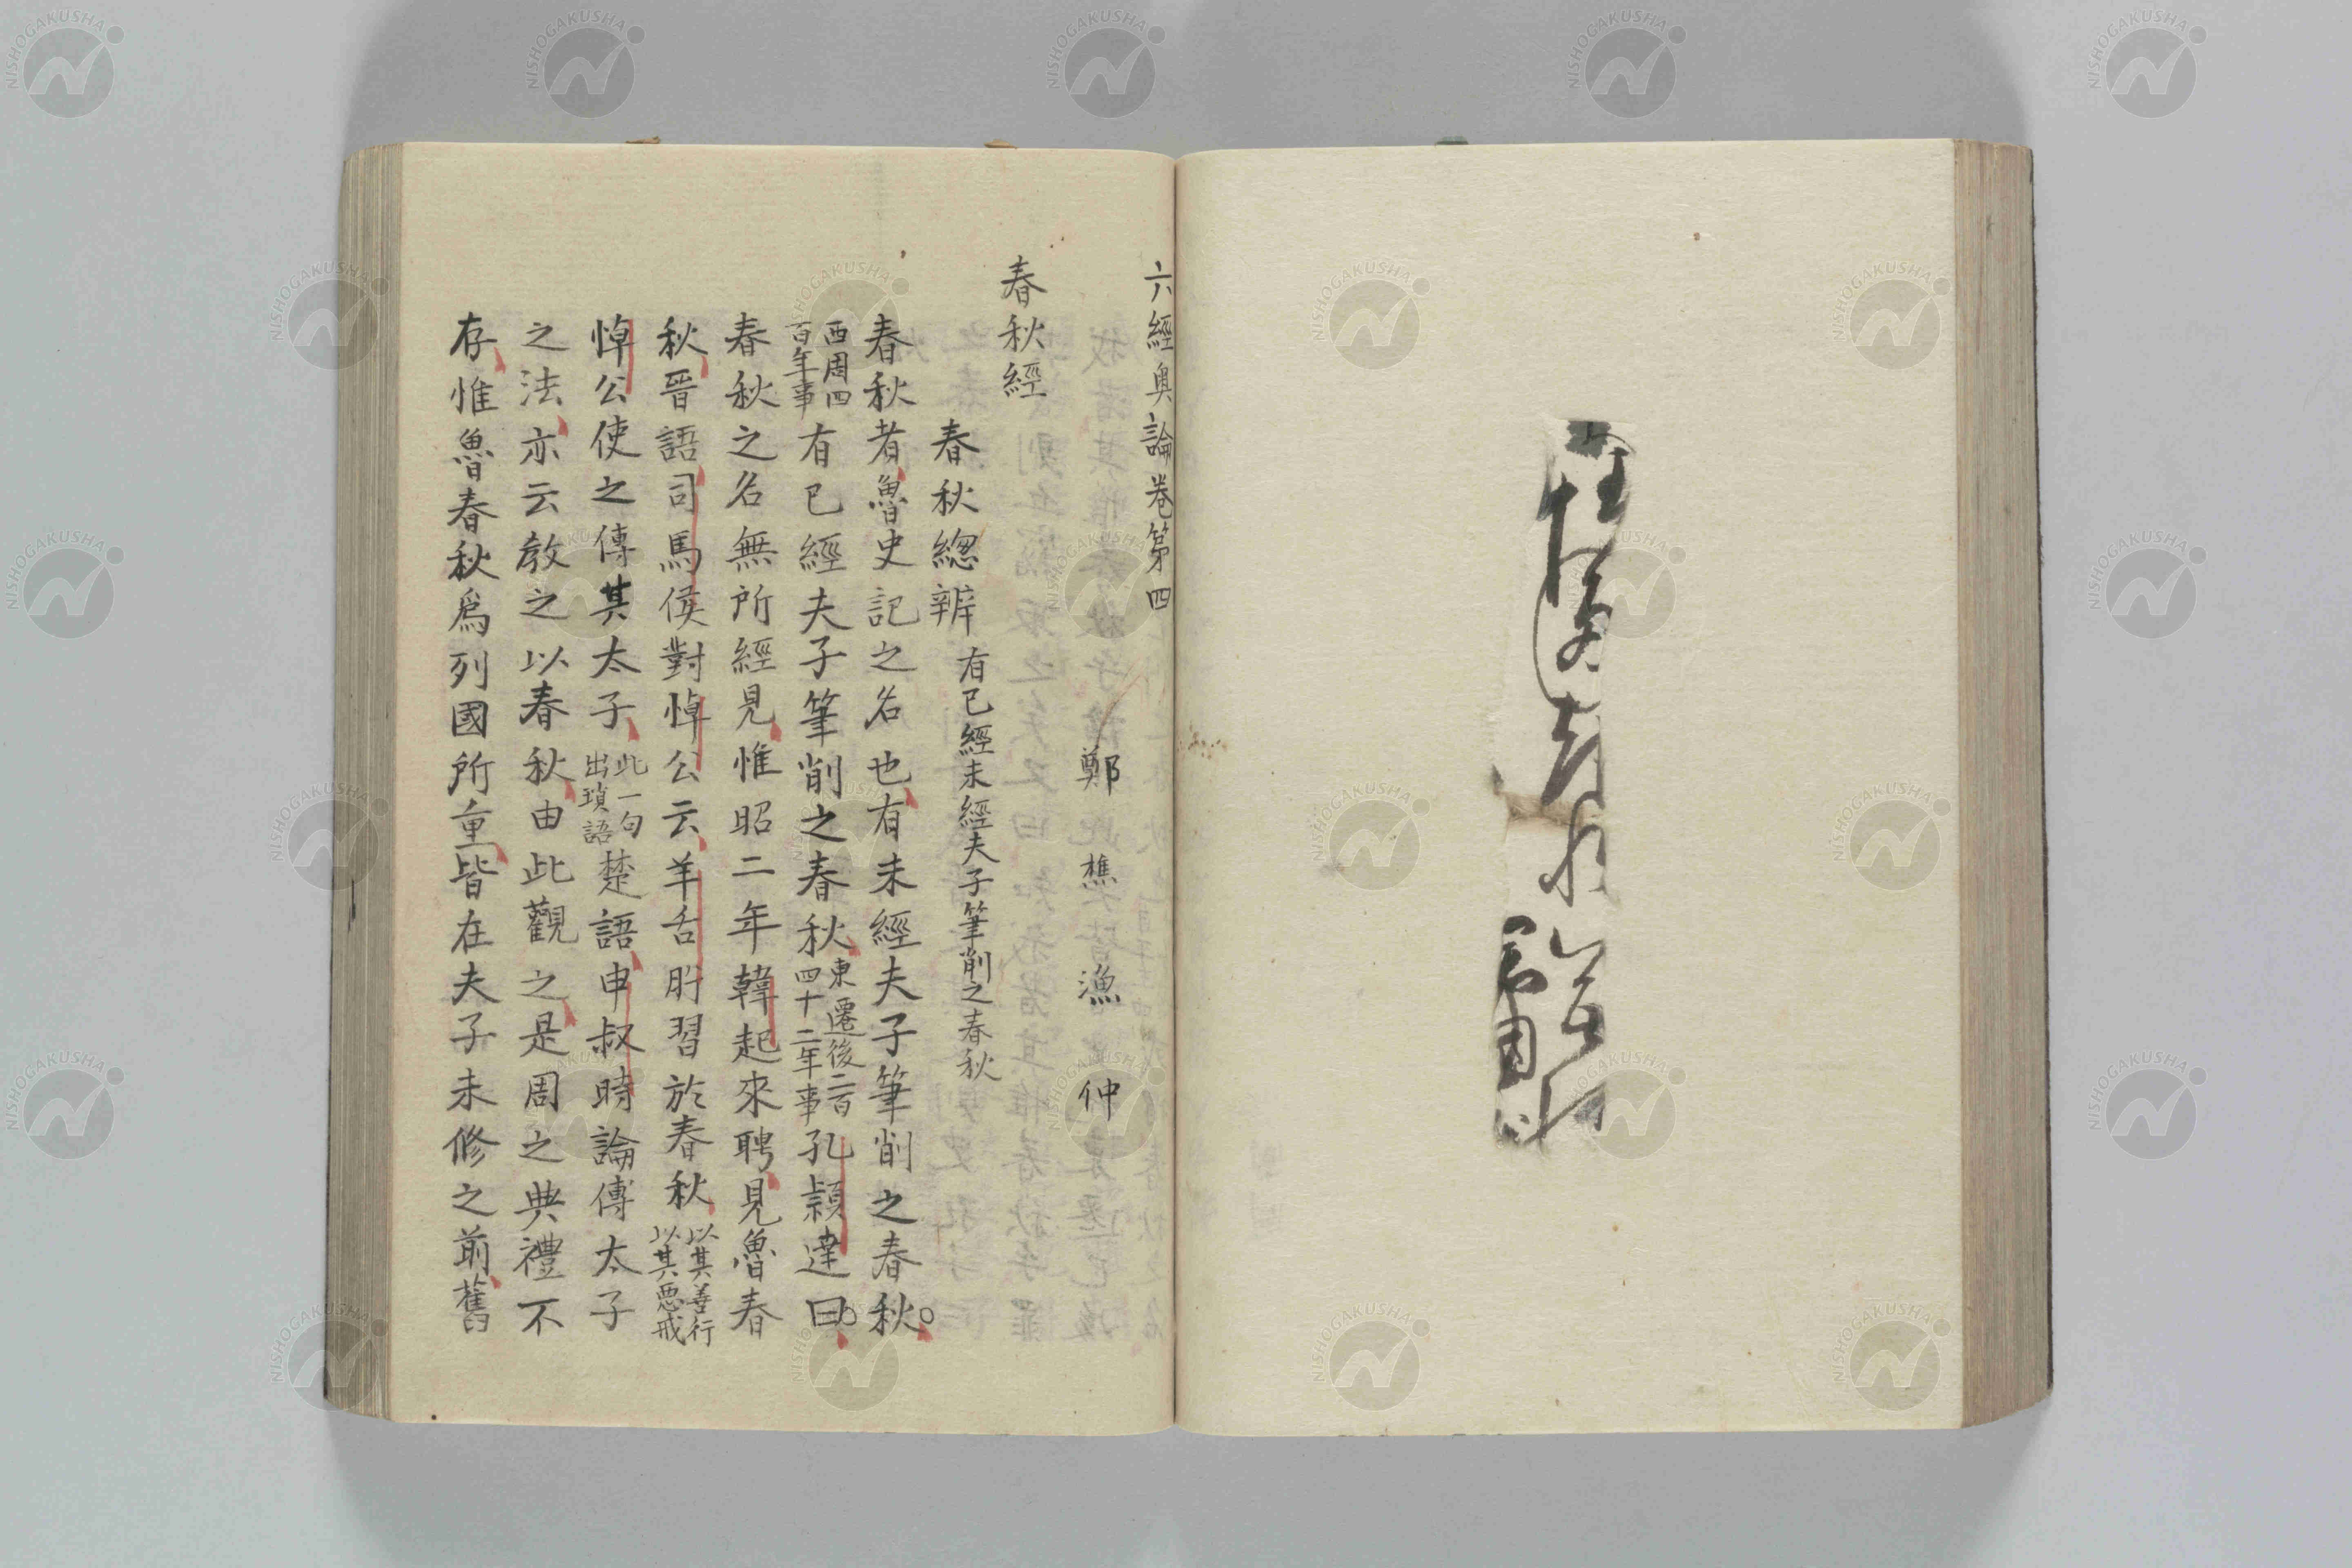 六經奥論卷第四
鄭樵漁仲
春秋經
春秋總辨 有已經未經夫子筆削之春秋
春秋者魯史記之名也有未經夫子筆削之春秋
西周四百年事有已經夫子筆削之春秋東遷後二百四十二年事孔頴達曰
春秋之名無所經見惟昭二年韓起來聘見魯春
秋晉語司馬侯對悼公云羊舌肸習於春秋以其善行以其惡戒
悼公使之傅其太子此一句出瑣語楚語申叔時論傅太子
之法亦云教之以春秋由此觀之是周之典禮不
存惟魯春秋爲列國所重皆在夫子未修之前舊
NISHOGAKUSHA